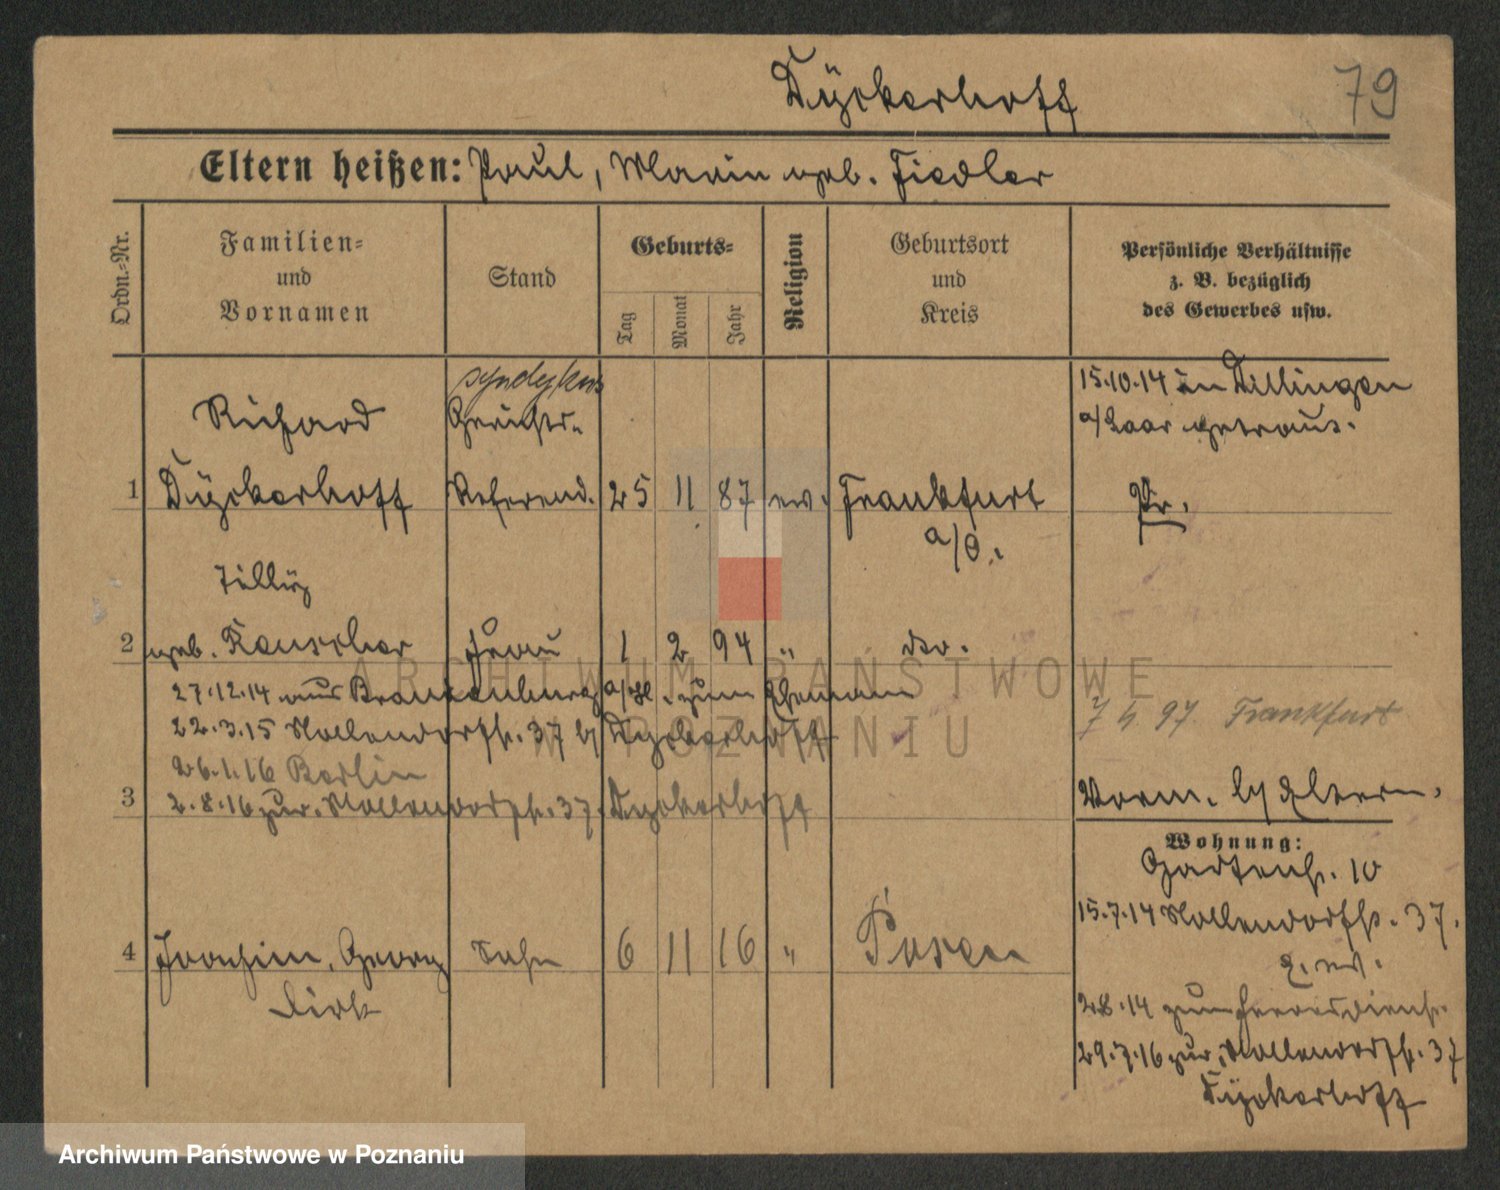 Dÿckerhoff
79
Eltern heißen: Paul, Marie geb. Fiedler
Ordn.-Nr.
Familien-
und
Vornamen
Stand
Geburts-
Tag
Monat
Jahr
Religion
Geburtsort
und
Kreis
Persönliche Verhältnisse
z. B. bezüglich
des Gewerbes usw.
Syndykus
15.10.14 in Dillingen
Richard
Gerichts-
a/Saar getraut.
1 Dÿckerhoff Referend. 25 11 87 ev. Frankfurt Pr.
a/O.
Tilly
2 geb. Kauscher Frau 1 2 94 " do.
27.12.14 aus Brandenburg a/H. zum Ehemann
7 4 97 Frankfurt
22.3.15 Nollendorfstr. 37 b/ Dyckerhoff
26.1.16 Berlin
3 2.8.16 zur. Nollendorfstr. 37. Dyckerhoff
Vorm. b/ Eltern.
Wohnung:
Gartenstr. 10
15.7.14 Nollendorfstr. 37.
4 Joachim, Georg Sohn 6 11 16 " Posen
Dirk
2.8.14 zum Heeresdienst.
29.7.16 zur. Nollendorfstr. 37
Dÿckerhoff
ARCHIWUM PAŃSTWOWE
W POZNANIU
Archiwum Państwowe w Poznaniu